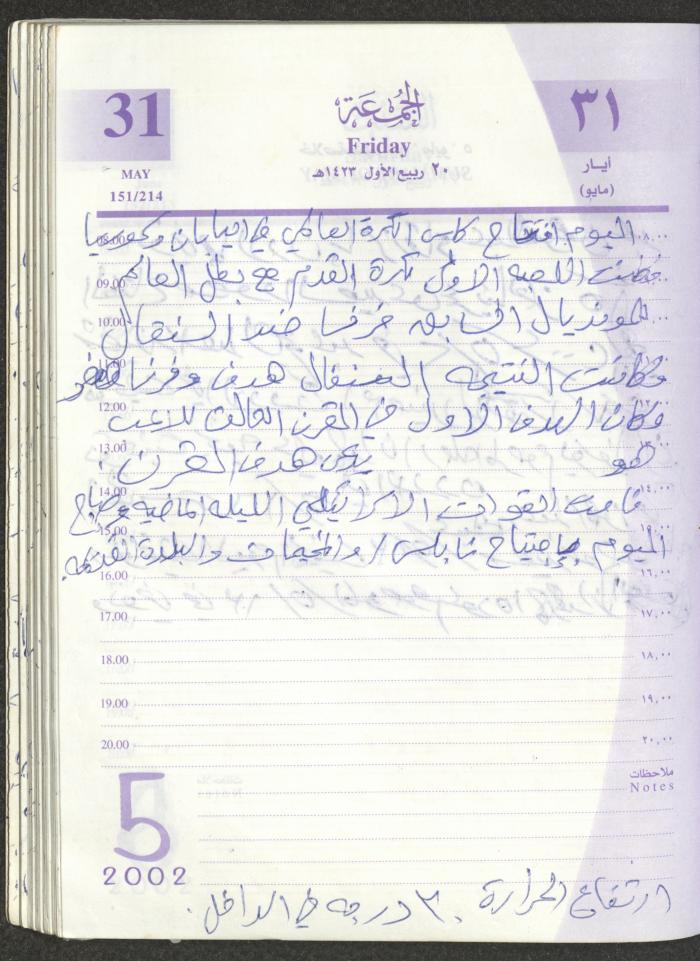 31
MAY
151/214
الجمعة
Friday
٢٠ ربيع الأول ١٤٢٣هـ
٣١
أيار
(مايو)
اليوم افتتاح كاس الكرة العالمي في اليابان وكوريا
08.00 ٨,٠٠
اللعبه الاولى بكرة القدم مع بطل العالم
09.00
للمونديال السابق فرنسا ضد السنغال
10.00
وكانت النتيجه السنغال هدف وفرنسا صفر
12.00
وكان الهدف الاول في القرن الحالي للاعب
13.00
هو يدعى هدف القرن.
14.00 ١٤,٠٠
قامت القوات الاسرائيلي الليله الماضيه وصباح
15.00
اليوم باجتياح نابلس / والمخيمات والبلدة القديمه.
16.00 ١٦,٠٠
17.00 ١٧,٠٠
18.00 ١٨,٠٠
19.00 ١٩,٠٠
20.00 ٢٠,٠٠
ملاحظات
Notes
5
2002
ارتفاع الحرارة ٣٠ درجه في الداخل.